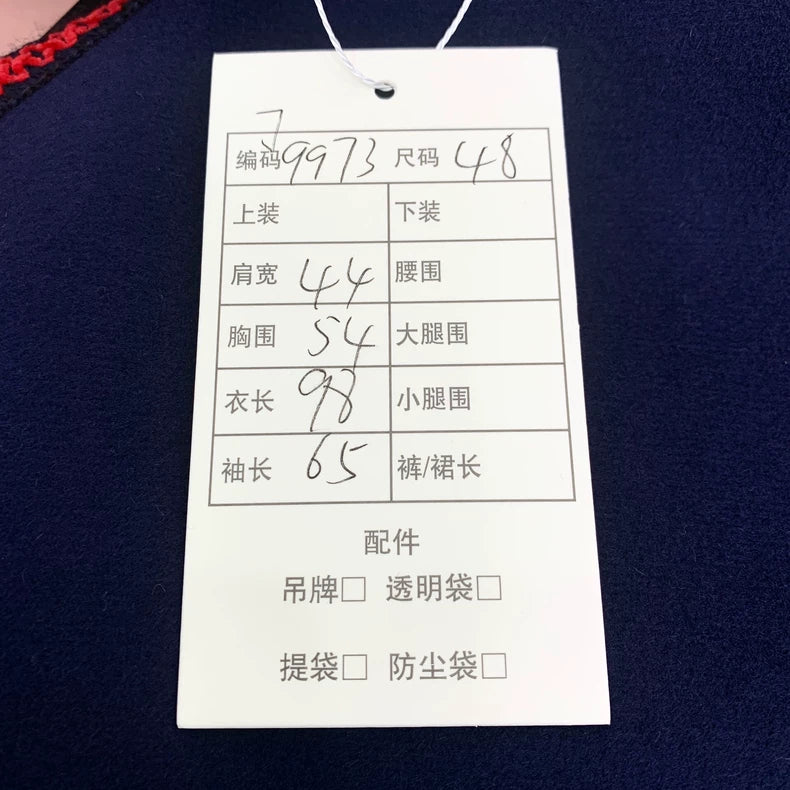 7
编码 9973 尺码 48
上装 下装
肩宽 44 腰围
胸围 54 大腿围
衣长 98 小腿围
袖长 65 裤/裙长
配件
吊牌□ 透明袋□
提袋□ 防尘袋□